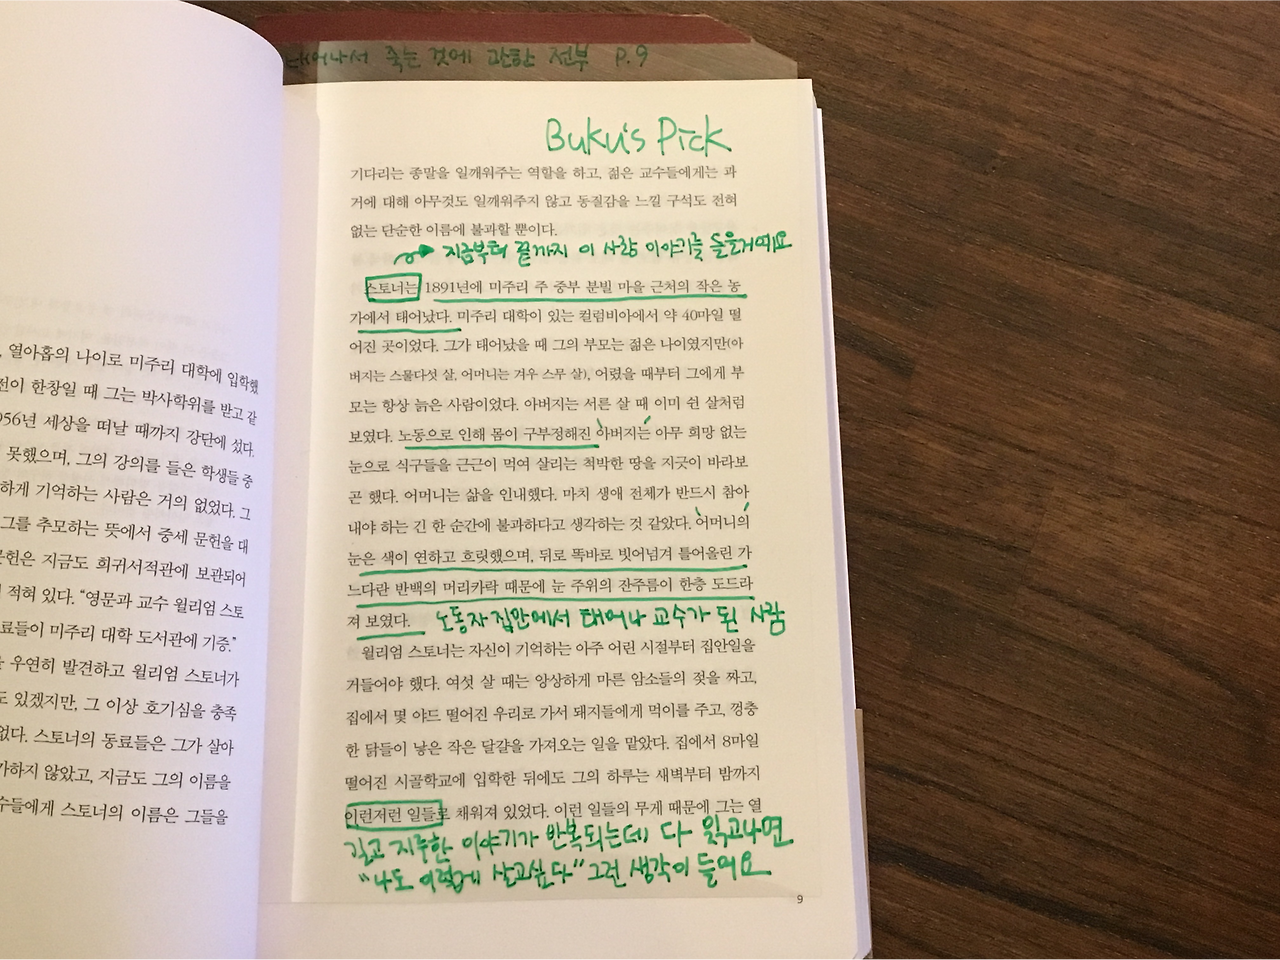 , 열아홉의 나이로 미주리 대학에 입학했
전이 한창일 때 그는 박사학위를 받고 같
956년 세상을 떠날 때까지 강단에 섰다.
못했으며, 그의 강의를 들은 학생들 중
하게 기억하는 사람은 거의 없었다. 그
그를 추모하는 뜻에서 중세 문헌을 대
문헌은 지금도 희귀서적관에 보관되어
적혀 있다. “영문과 교수 윌리엄 스토
료들이 미주리 대학 도서관에 기증.”
우연히 발견하고 윌리엄 스토너가
도 있겠지만, 그 이상 호기심을 충족
없다. 스토너의 동료들은 그가 살아
가하지 않았고, 지금도 그의 이름을
수들에게 스토너의 이름은 그들을
태어나서 죽는 것에 관한 전부 P.9
Buku's Pick
기다리는 종말을 일깨워주는 역할을 하고, 젊은 교수들에게는 과
거에 대해 아무것도 일깨워주지 않고 동질감을 느낄 구석도 전혀
없는 단순한 이름에 불과할 뿐이다.
지금부터 끝까지 이 사람 이야기를 들을거예요
스토너는 1891년에 미주리 주 중부 분빌 마을 근처의 작은 농
가에서 태어났다. 미주리 대학이 있는 컬럼비아에서 약 40마일 떨
어진 곳이었다. 그가 태어났을 때 그의 부모는 젊은 나이였지만(아
버지는 스물다섯 살, 어머니는 겨우 스무 살), 어렸을 때부터 그에게 부
모는 항상 늙은 사람이었다. 아버지는 서른 살 때 이미 쉰 살처럼
보였다. 노동으로 인해 몸이 구부정해진 아버지는 아무 희망 없는
눈으로 식구들을 근근이 먹여 살리는 척박한 땅을 지긋이 바라보
곤 했다. 어머니는 삶을 인내했다. 마치 생애 전체가 반드시 참아
내야 하는 긴 한 순간에 불과하다고 생각하는 것 같았다. 어머니의
눈은 색이 연하고 흐릿했으며, 뒤로 똑바로 빗어넘겨 틀어올린 가
느다란 반백의 머리카락 때문에 눈 주위의 잔주름이 한층 도드라
져 보였다. 노동자 집안에서 태어나 교수가 된 사람
윌리엄 스토너는 자신이 기억하는 아주 어린 시절부터 집안일을
거들어야 했다. 여섯 살 때는 앙상하게 마른 암소들의 젖을 짜고,
집에서 몇 야드 떨어진 우리로 가서 돼지들에게 먹이를 주고, 껑충
한 닭들이 낳은 작은 달걀을 가져오는 일을 맡았다. 집에서 8마일
떨어진 시골학교에 입학한 뒤에도 그의 하루는 새벽부터 밤까지
이런저런 일들로 채워져 있었다. 이런 일들의 무게 때문에 그는 열
길고 지루한 이야기가 반복되는데 다 읽고나면
“나도 이렇게 살고싶다” 그런 생각이 들어요
9